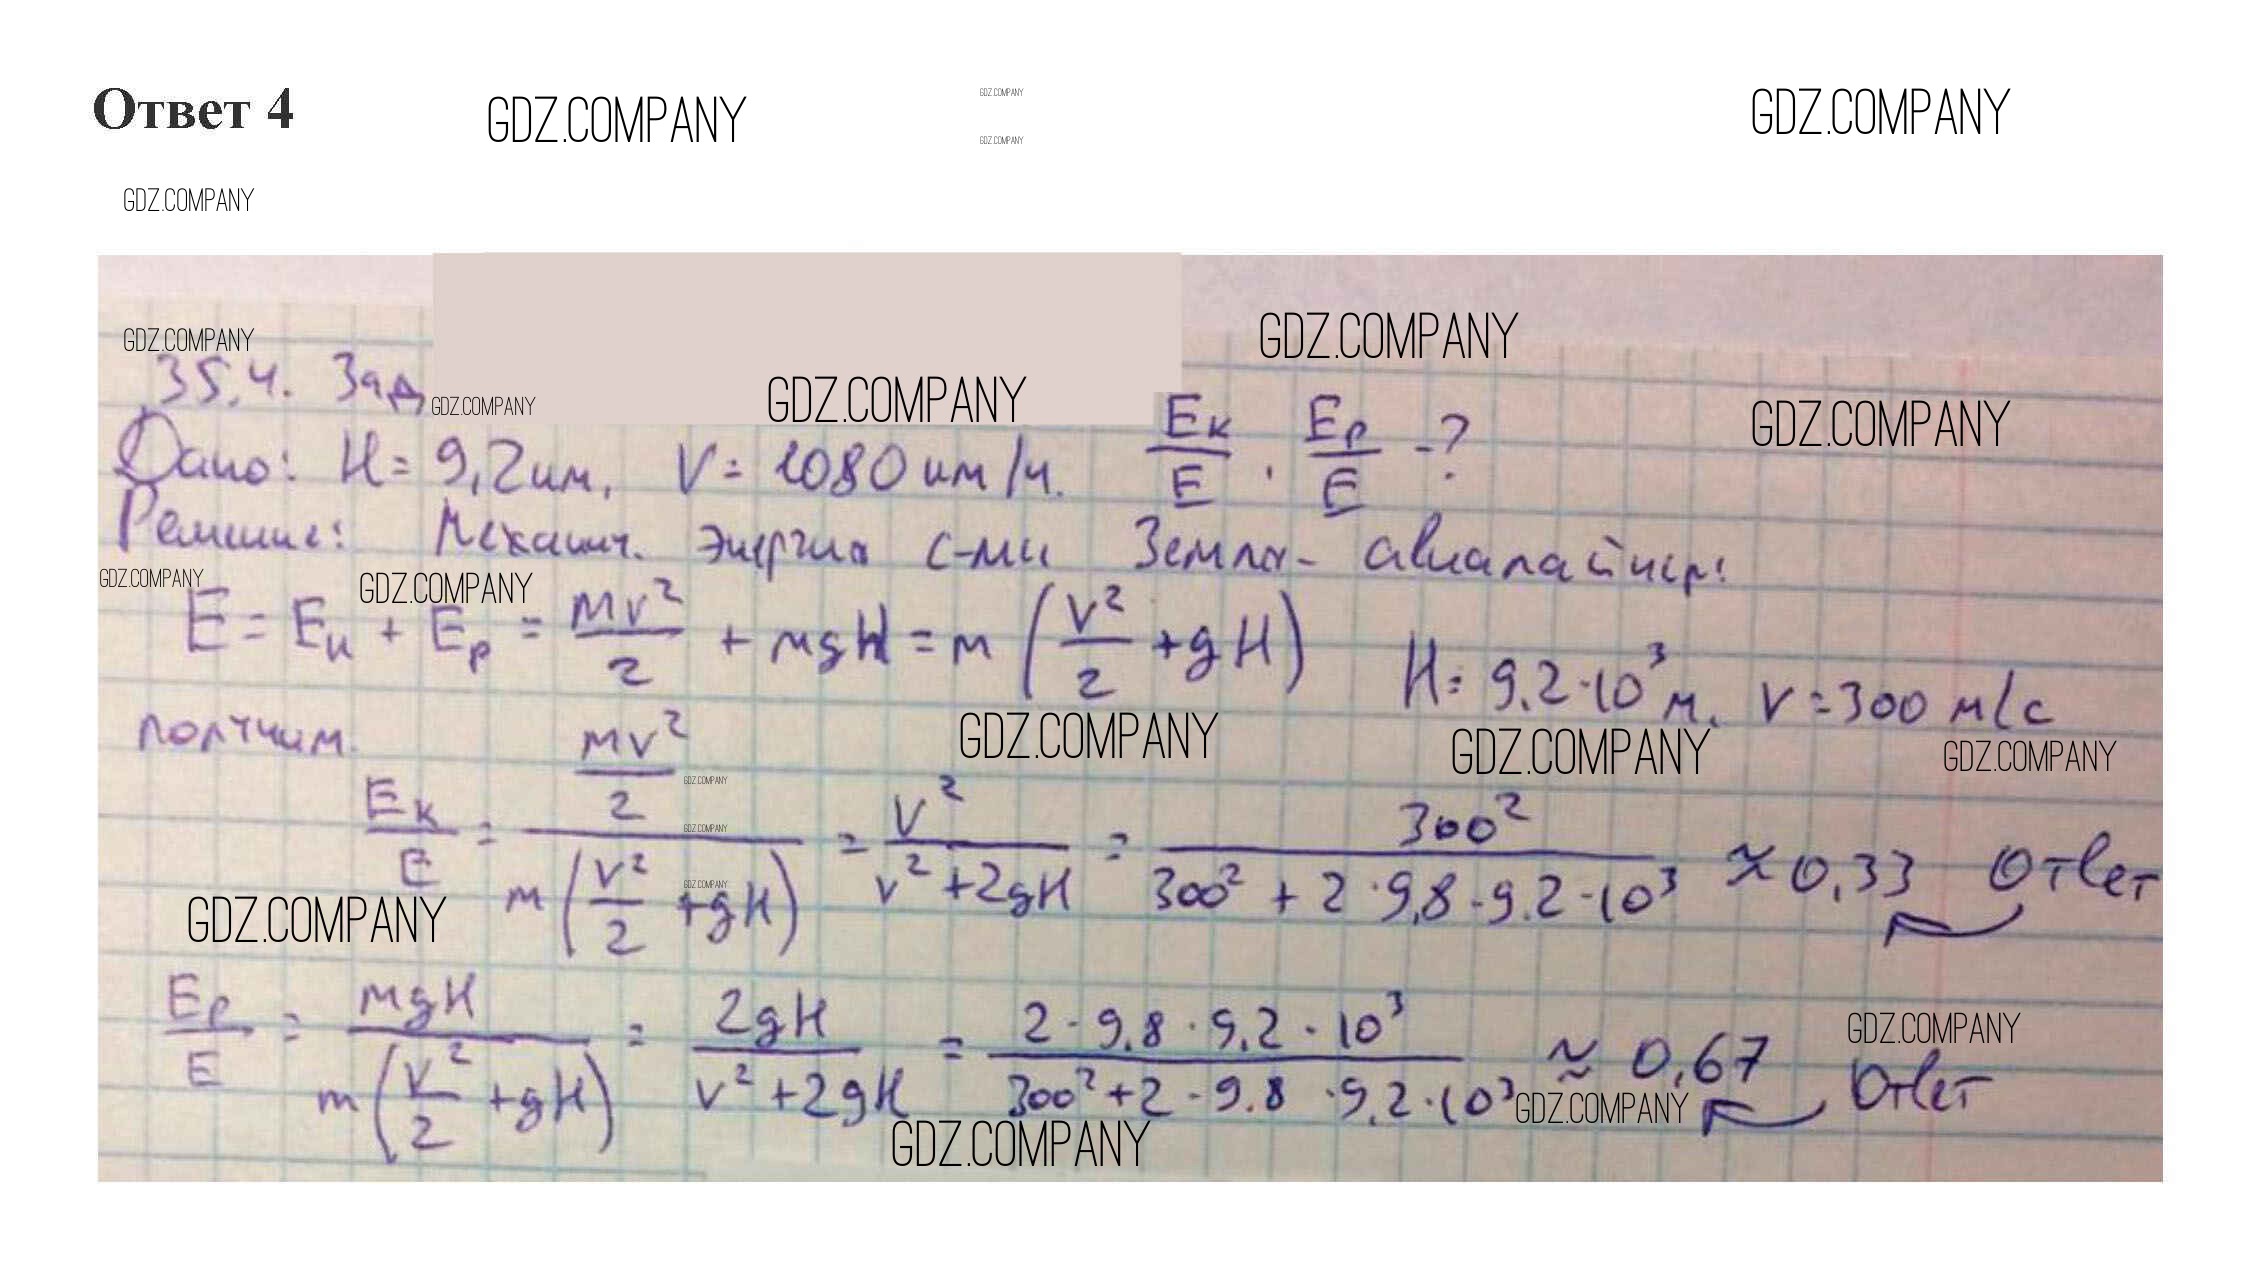 Ответ 4
GDZ.COMPANY
GDZ.COMPANY
GDZ.COMPANY
GDZ.COMPANY
GDZ.COMPANY
GDZ.COMPANY
GDZ.COMPANY
35.4. Зад
GDZ.COMPANY
GDZ.COMPANY
GDZ.COMPANY
Дано: H = 9,2 км, V = 1080 км/ч. Eк/E, Ep/E - ?
Решение: Механич. энергия с-мы Земля - авиалайнер:
GDZ.COMPANY
GDZ.COMPANY
E = Eк + Ep = mv²/2 + mgH = m (v²/2 + gH) H = 9,2·10³ м, v = 300 м/с
получим.
GDZ.COMPANY
GDZ.COMPANY
GDZ.COMPANY
GDZ.COMPANY
GDZ.COMPANY
GDZ.COMPANY
Eк/E = (mv²/2)/(m (v²/2 + gH)) = v²/(v² + 2gH) = 300²/(300² + 2·9,8·9,2·10³) ≈ 0,33 Ответ
GDZ.COMPANY
GDZ.COMPANY
Ep/E = mgH/(m (v²/2 + gH)) = 2gH/(v² + 2gH) = 2·9,8·9,2·10³/(300² + 2·9,8·9,2·10³) ≈ 0,67 Ответ
GDZ.COMPANY
GDZ.COMPANY